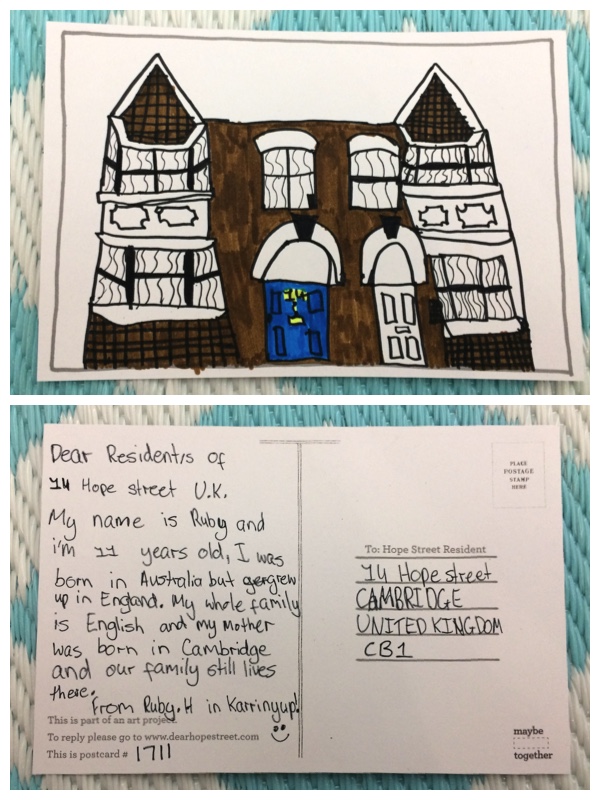 14
Dear Resident/s of
14 Hope street U.K.
My name is Ruby and
i'm 11 years old, I was
born in Australia but grew
up in England. My whole family
is English and my Mother
was born in Cambridge
and our family still lives
there.
from Ruby.H in Karrinyup!
This is part of an art project.
To reply please go to www.dearhopestreet.com
This is postcard # 1711
PLACE
POSTAGE
STAMP
HERE
To: Hope Street Resident
14 Hope street
CAMBRIDGE
UNITED KINGDOM
CB1
maybe
together